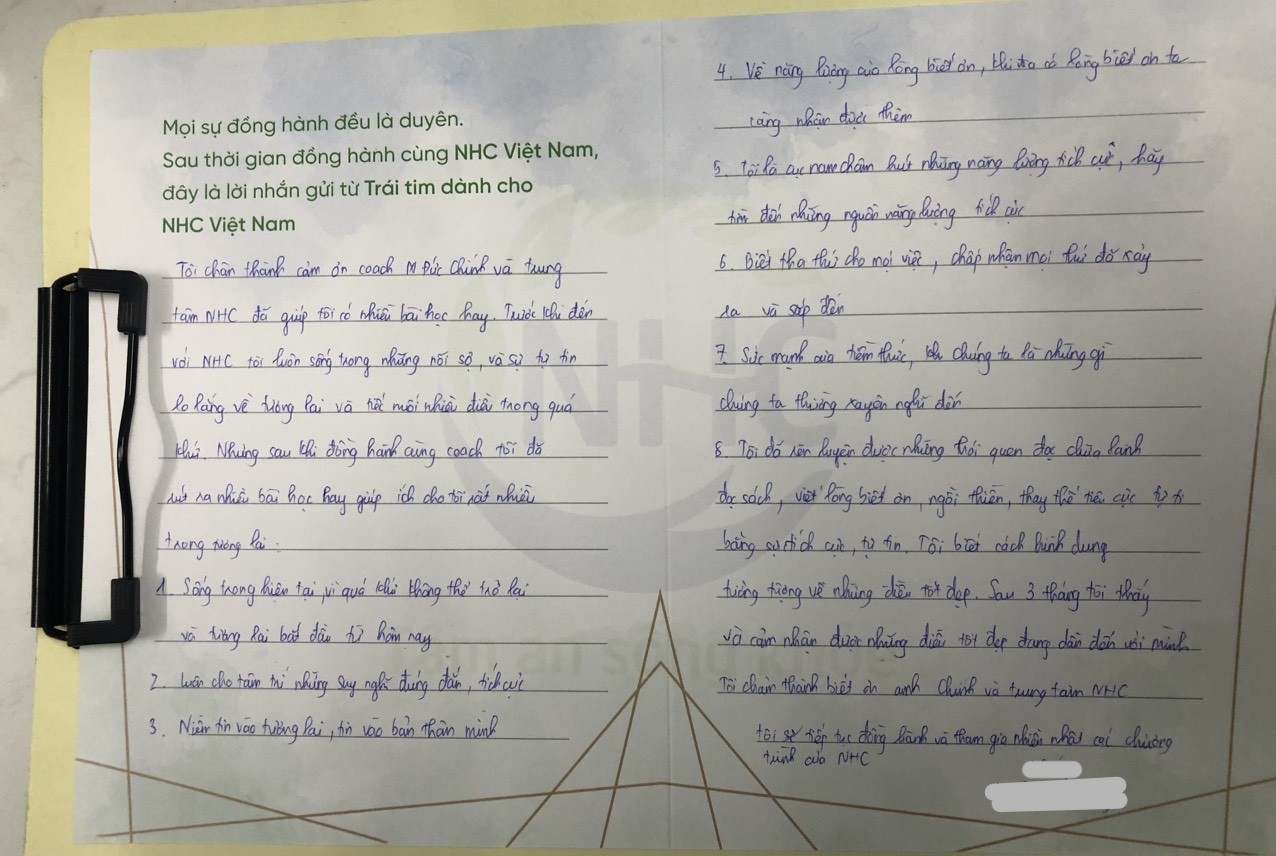 Mọi sự đồng hành đều là duyên.
Sau thời gian đồng hành cùng NHC Việt Nam,
đây là lời nhắn gửi từ Trái tim dành cho
NHC Việt Nam
Tôi chân thành cảm ơn coach M Đức Chinh và trung
tâm NHC đã giúp tôi có nhiều bài học hay. Trước khi đến
với NHC tôi luôn sống trong những nỗi sợ, và sự tự tin
lo lắng về tương lai và tiếc nuối nhiều điều trong quá
khứ. Nhưng sau khi đồng hành cùng coach tôi đã
rút ra nhiều bài học hay giúp ích cho tôi rất nhiều
trong tương lai :
1. Sống trong hiện tại, vì quá khứ không thể trở lại
và tương lai bắt đầu từ hôm nay
2. Luôn cho tâm trí những suy nghĩ đúng đắn, tích cực
3. Niềm tin vào tương lai, tin vào bản thân mình
4. Về năng lượng của lòng biết ơn, khi ta có lòng biết ơn ta
càng nhận được thêm
5. Tôi là cục nam châm hút những năng lượng tích cực, hãy
tìm đến những nguồn năng lượng tích cực
6. Biết tha thứ cho mọi việc, chấp nhận mọi thứ đã xảy
ra và sắp đến
7. Sức mạnh của tiềm thức, chúng ta là những gì
chúng ta thường xuyên nghĩ đến
8. Tôi đã rèn luyện được những thói quen đọc chữa lành
đọc sách, viết lòng biết ơn, ngồi thiền, thay thế tiêu cực tự ti
bằng sự tích cực, tự tin. Tôi biết cách hình dung
tưởng tượng về những điều tốt đẹp. Sau 3 tháng tôi thấy
và cảm nhận được những điều tốt đẹp đang dần đến với mình
Tôi chân thành biết ơn anh Chinh và trung tâm NHC
tôi sẽ tiếp tục đồng hành và tham gia nhiều nhất các chương
trình của NHC
NHC